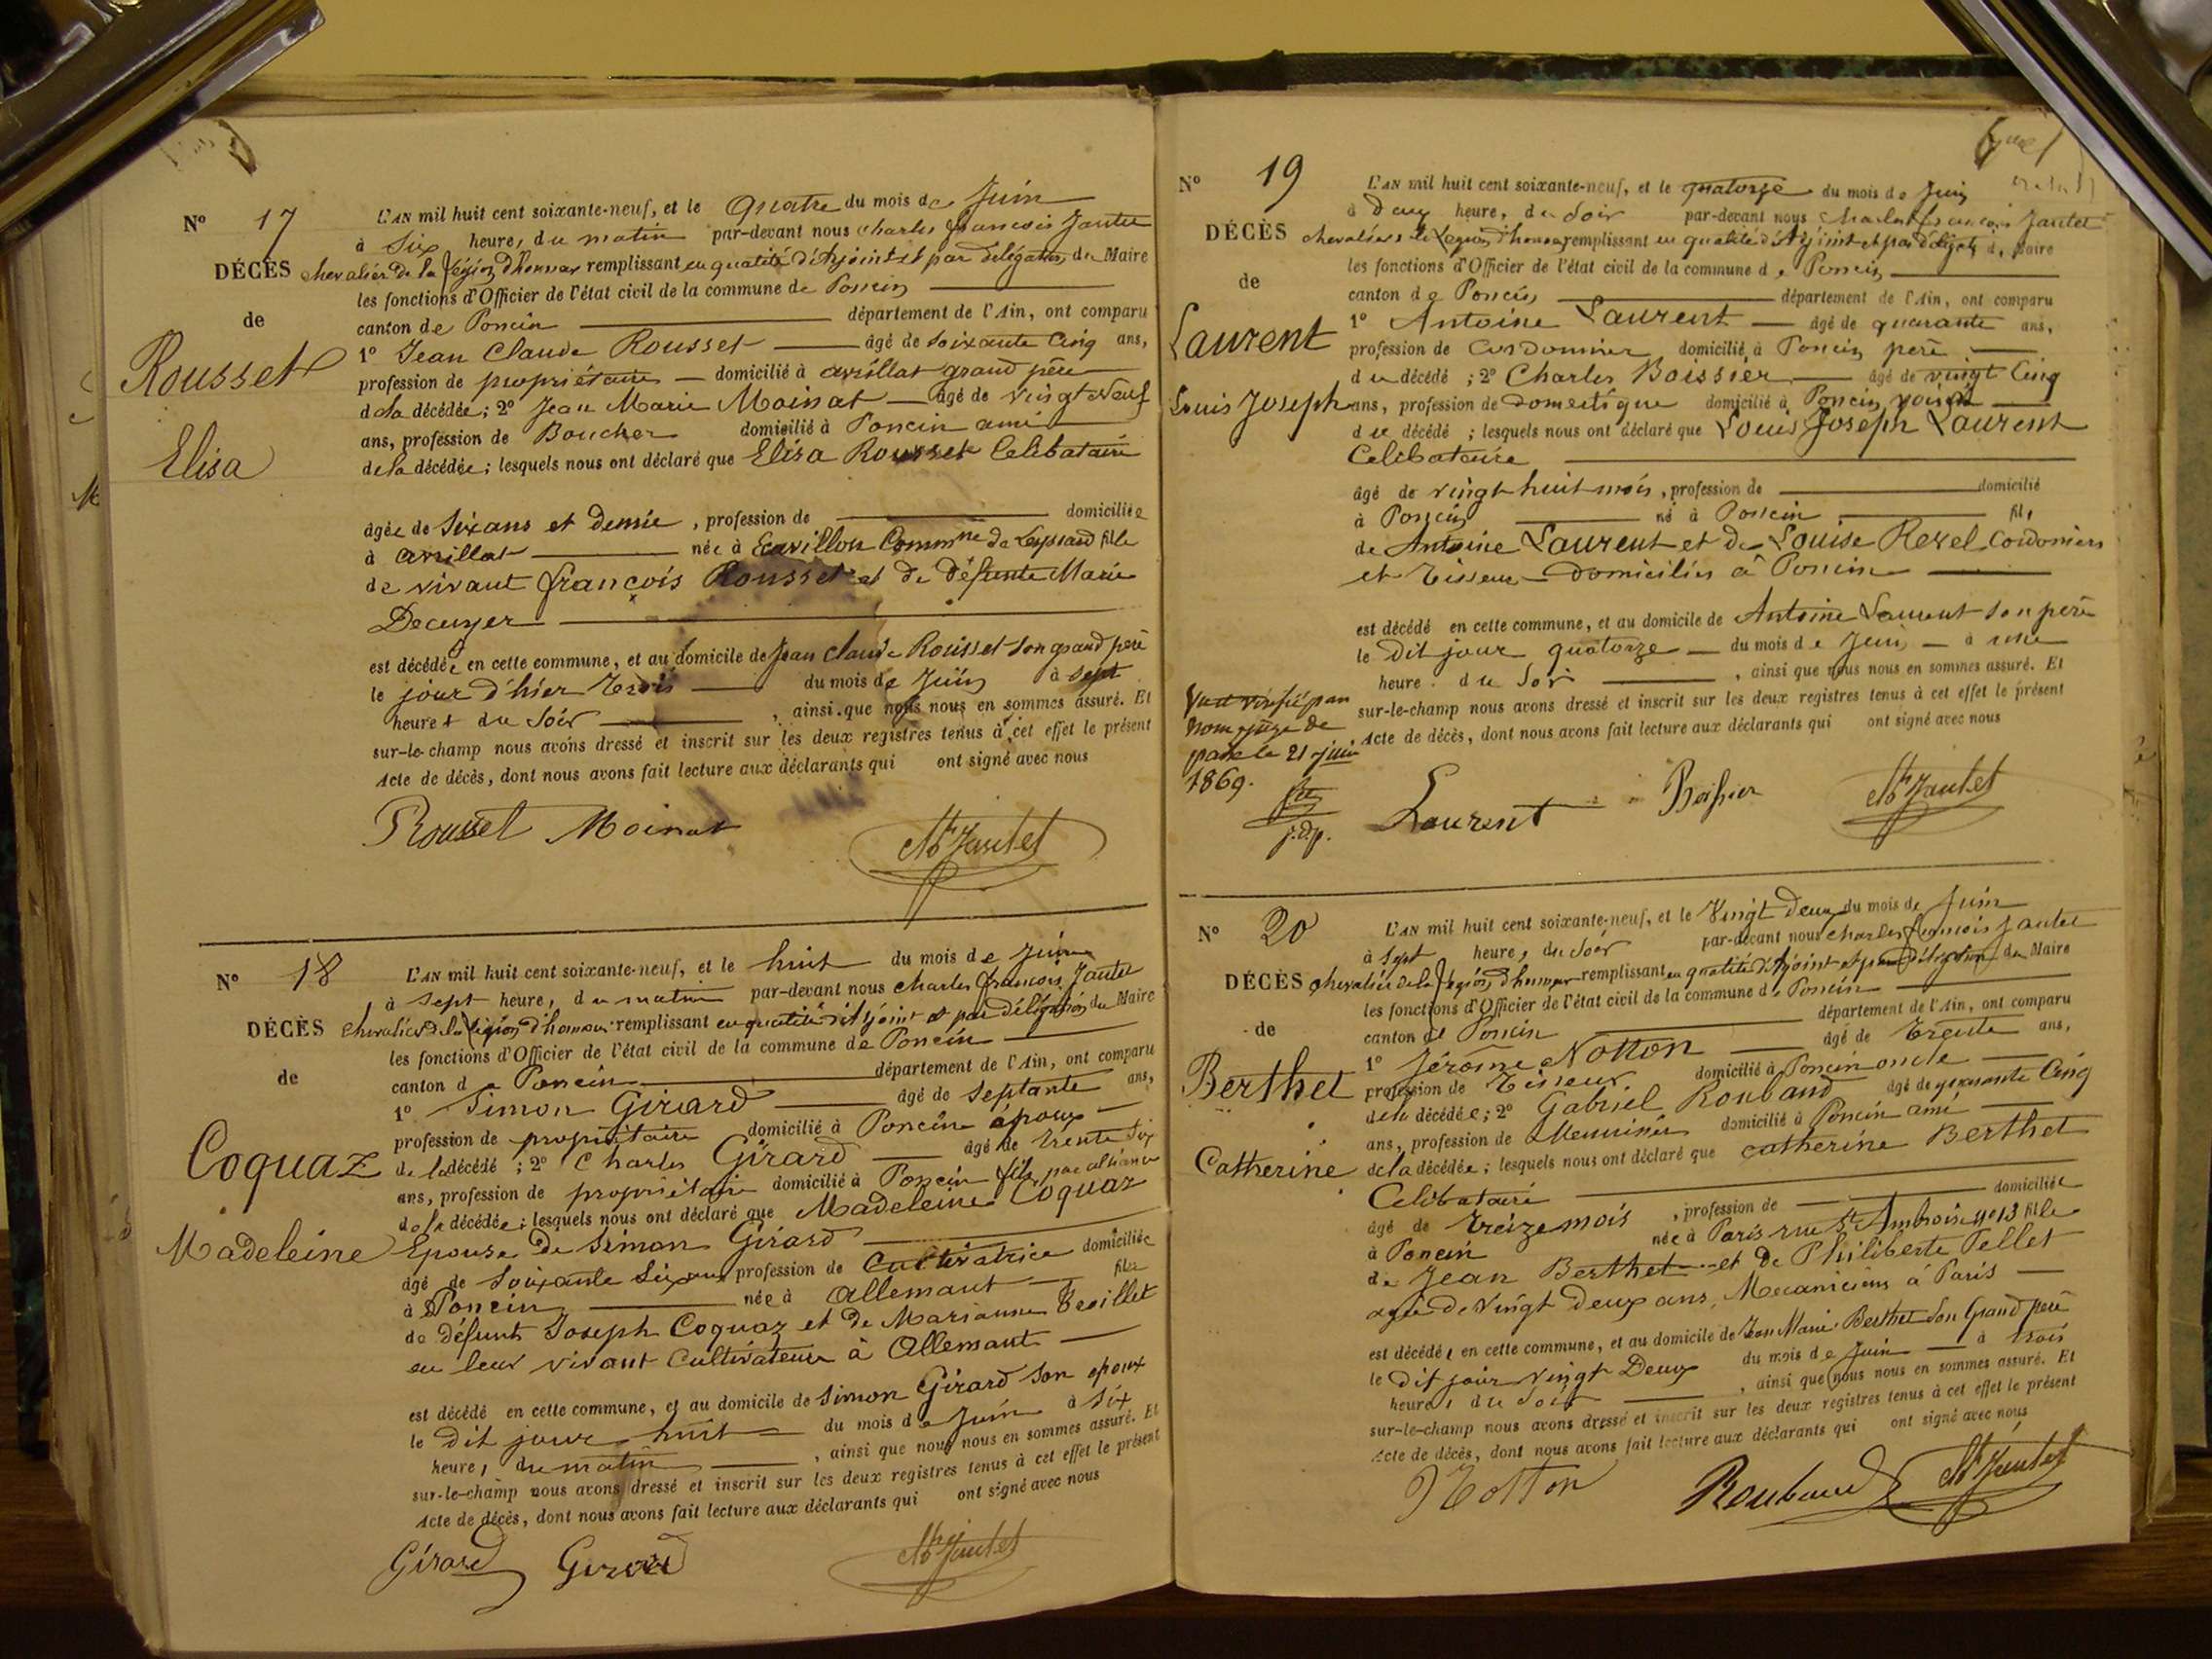 N° 17
DÉCÈS
de
Rousset
Elisa
L'AN mil huit cent soixante-neuf, et le Quatre du mois de Juin
à Six heures du matin par-devant nous Charles francois Jantet
chevalier de la Légion d'honneur remplissant en qualité d'Adjoint et par délégation du Maire
les fonctions d'Officier de l'état civil de la commune de Poncin
canton de Poncin département de l'Ain, ont comparu
1° Jean Claude Rousset âgé de soixante Cinq ans,
profession de propriétaire domicilié à avrillat grand père
de la décédée; 2° Jean Marie Moinat âgé de vingt Neuf
ans, profession de Boucher domicilié à Poncin ami
de la décédée; lesquels nous ont déclaré que Elisa Rousset Celibataire
âgée de Six ans et demie, profession de domiciliée
à avrillat née à Ecuvillon Commne de Leyssard fille
de vivant françois Rousset et de défunte Marie
Decuyer
est décédée en cette commune, et au domicile de Jean Claude Rousset son grand père
le jour d'hier trois du mois de Juin à sept
heures du Soir, ainsi que nous nous en sommes assuré. Et
sur-le-champ nous avons dressé et inscrit sur les deux registres tenus à cet effet le présent
Acte de décès, dont nous avons fait lecture aux déclarants qui ont signé avec nous
Rousset Moinat Ch Jantet
N° 18
DÉCÈS
de
Coquaz
Madeleine
L'AN mil huit cent soixante-neuf, et le huit du mois de Juin
à sept heure, du matin par-devant nous Charles francois Jantet
chevalier de la Légion d'honneur remplissant en qualité d'Adjoint et par délégation du Maire
les fonctions d'Officier de l'état civil de la commune de Poncin
canton de Poncin département de l'Ain, ont comparu
1° Simon Girard âgé de septante ans,
profession de propriétaire domicilié à Poncin époux
de la décédé; 2° Charles Girard âgé de trente Six
ans, profession de propriétaire domicilié à Poncin fils par alliance
de la décédée; lesquels nous ont déclaré que Madeleine Coquaz
Epouse de Simon Girard
âgé de soixante Six ans profession de Cultivatrice domiciliée
à Poncin née à Allemant fille
de défunts Joseph Coquaz et de Marianne
en leur vivant Cultivateurs à Allemant
est décédé en cette commune, et au domicile de Simon Girard son epoux
le dit jour huit du mois de Juin à Six
heure, du matin, ainsi que nous nous en sommes assuré. Et
sur-le-champ nous avons dressé et inscrit sur les deux registres tenus à cet effet le présent
Acte de décès, dont nous avons fait lecture aux déclarants qui ont signé avec nous
Girard Girard Ch Jantet
N° 19
DÉCÈS
de
Laurent
Louis Joseph
L'AN mil huit cent soixante-neuf, et le quatorze du mois de Juin
à Deux heure, du Soir par-devant nous Charles francois Jantet
chevalier de la Légion d'honneur remplissant en qualité d'Adjoint et par délégation du Maire
les fonctions d'Officier de l'état civil de la commune de Poncin
canton de Poncin département de l'Ain, ont comparu
1° Antoine Laurent âgé de quarante ans,
profession de Cordonnier domicilié à Poncin père
du décédé; 2° Charles Boissier âgé de vingt Cinq
ans, profession de domestique domicilié à Poncin voisin
du décédé; lesquels nous ont déclaré que Louis Joseph Laurent
Celibataire
âgé de vingt huit mois, profession de domicilié
à Poncin né à Poncin fils
de Antoine Laurent et de Louise Revel Cordonniers
et Tisseur domiciliés à Poncin
est décédé en cette commune, et au domicile de Antoine Laurent son père
le dit jour quatorze du mois de Juin à une
heure du Soir, ainsi que nous nous en sommes assuré. Et
sur-le-champ nous avons dressé et inscrit sur les deux registres tenus à cet effet le présent
Acte de décès, dont nous avons fait lecture aux déclarants qui ont signé avec nous
Vu et vérifié par
nous juge de
paix le 21 juin
1869.
j.d.p.
Laurent Boissier Ch Jantet
N° 20
DÉCÈS
de
Berthet
Catherine
L'AN mil huit cent soixante-neuf, et le Vingt Deux du mois de Juin
à sept heures du Soir par-devant nous Charles francois Jantet
chevalier de la Légion d'honneur remplissant en qualité d'Adjoint et par délégation du Maire
les fonctions d'Officier de l'état civil de la commune de Poncin
canton de Poncin département de l'Ain, ont comparu
1° Jérôme Notton âgé de trente ans,
profession de Tisseur domicilié à Poncin oncle
de la décédée; 2° Gabriel Roubaud âgé de quarante Cinq
ans, profession de Menuisier domicilié à Poncin ami
de la décédée; lesquels nous ont déclaré que Catherine Berthet
Celibataire
âgé de treize mois, profession de domiciliée
à Poncin née à Paris rue St Ambroise n° 13 fille
de Jean Berthet et de Philiberte Pellet
agée de vingt deux ans, Mecaniciens à Paris
est décédée en cette commune, et au domicile de Jean Marie Berthet son Grand père
le dit jour vingt Deux du mois de Juin à trois
heures du Soir, ainsi que nous nous en sommes assuré. Et
sur-le-champ nous avons dressé et inscrit sur les deux registres tenus à cet effet le présent
Acte de décès, dont nous avons fait lecture aux déclarants qui ont signé avec nous
Notton Roubaud Ch Jantet